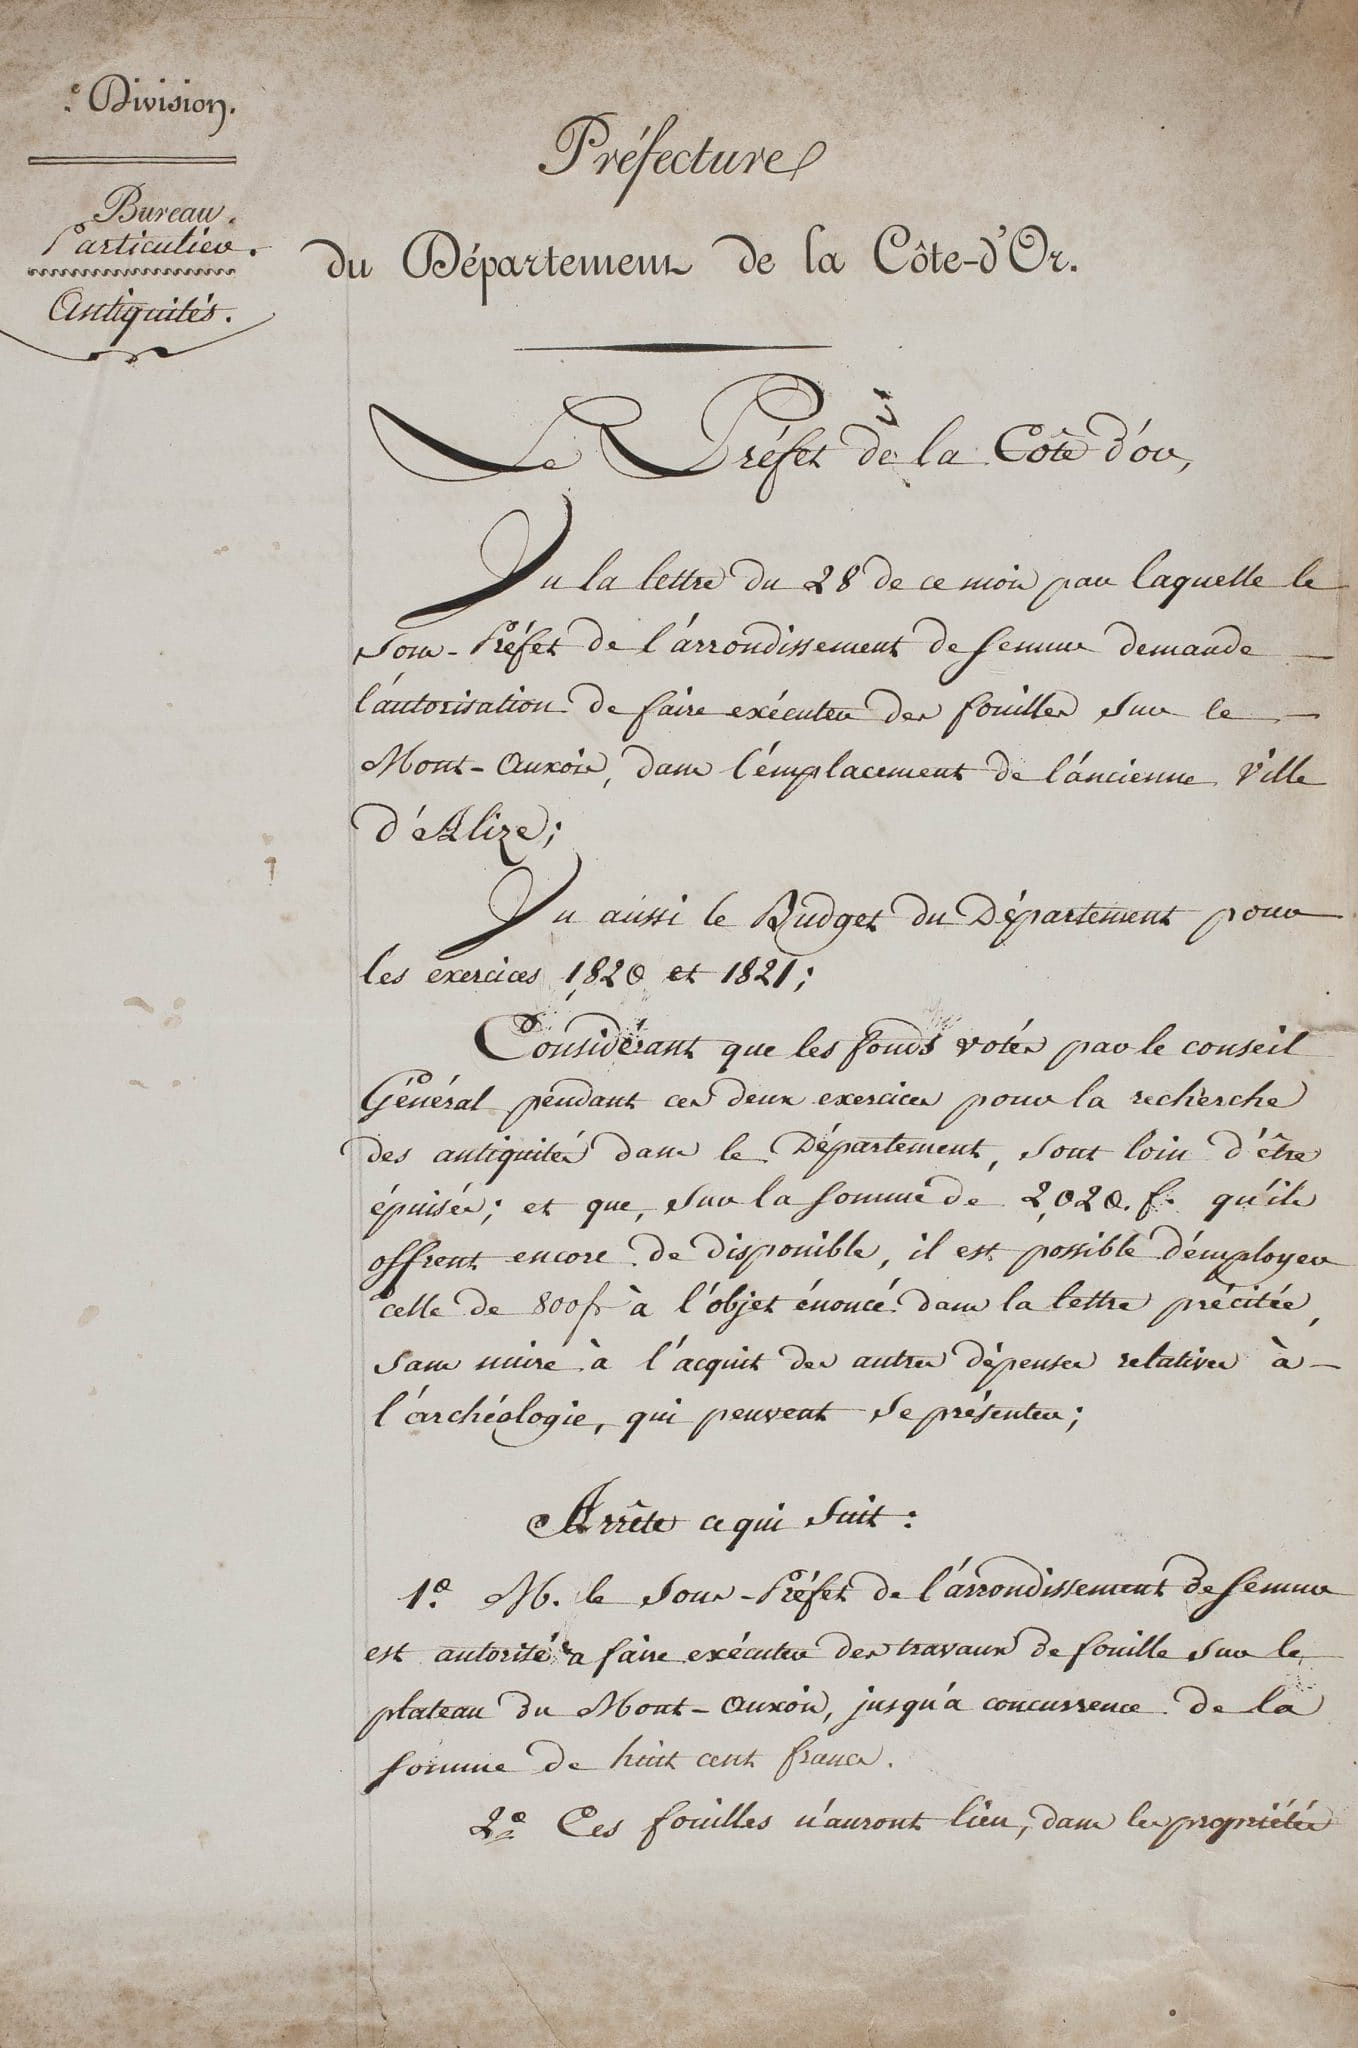 e Division.
Bureau
Particulier.
Antiquités.
Préfecture
du Département de la Côte-d'Or.
Le Préfet de la Côte d'or,
Vu la lettre du 28 de ce mois par laquelle le
Sous-Préfet de l'arrondissement de Semur demande
l'autorisation de faire exécuter des fouilles sur le
Mont-Auxois, dans l'emplacement de l'ancienne Ville
d'Alize;
Vu aussi le Budget du Département pour
les exercices 1820 et 1821;
Considérant que les fonds votés par le conseil
Général pendant ces deux exercices pour la recherche
des antiquités dans le Département, sont loin d'être
épuisés; et que, sur la somme de 2,020. f. qu'ils
offrent encore de disponible, il est possible d'employer
celle de 800 fr à l'objet énoncé dans la lettre précitée,
sans nuire à l'acquit des autres dépenses relatives à
l'archéologie, qui peuvent se présenter;
Arrête ce qui suit:
1.º M. le Sous-Préfet de l'arrondissement de Semur
est autorisé à faire exécuter des travaux de fouille sur le
plateau du Mont-Auxois, jusqu'à concurrence de la
somme de huit cent francs.
2.º Ces fouilles n'auront lieu, dans les propriétés